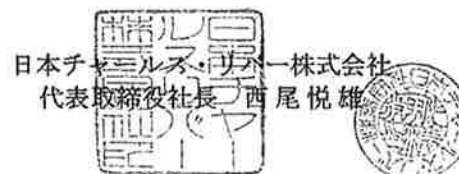 日本チャールス・リバー株式会社
代表取締役社長　西尾悦雄